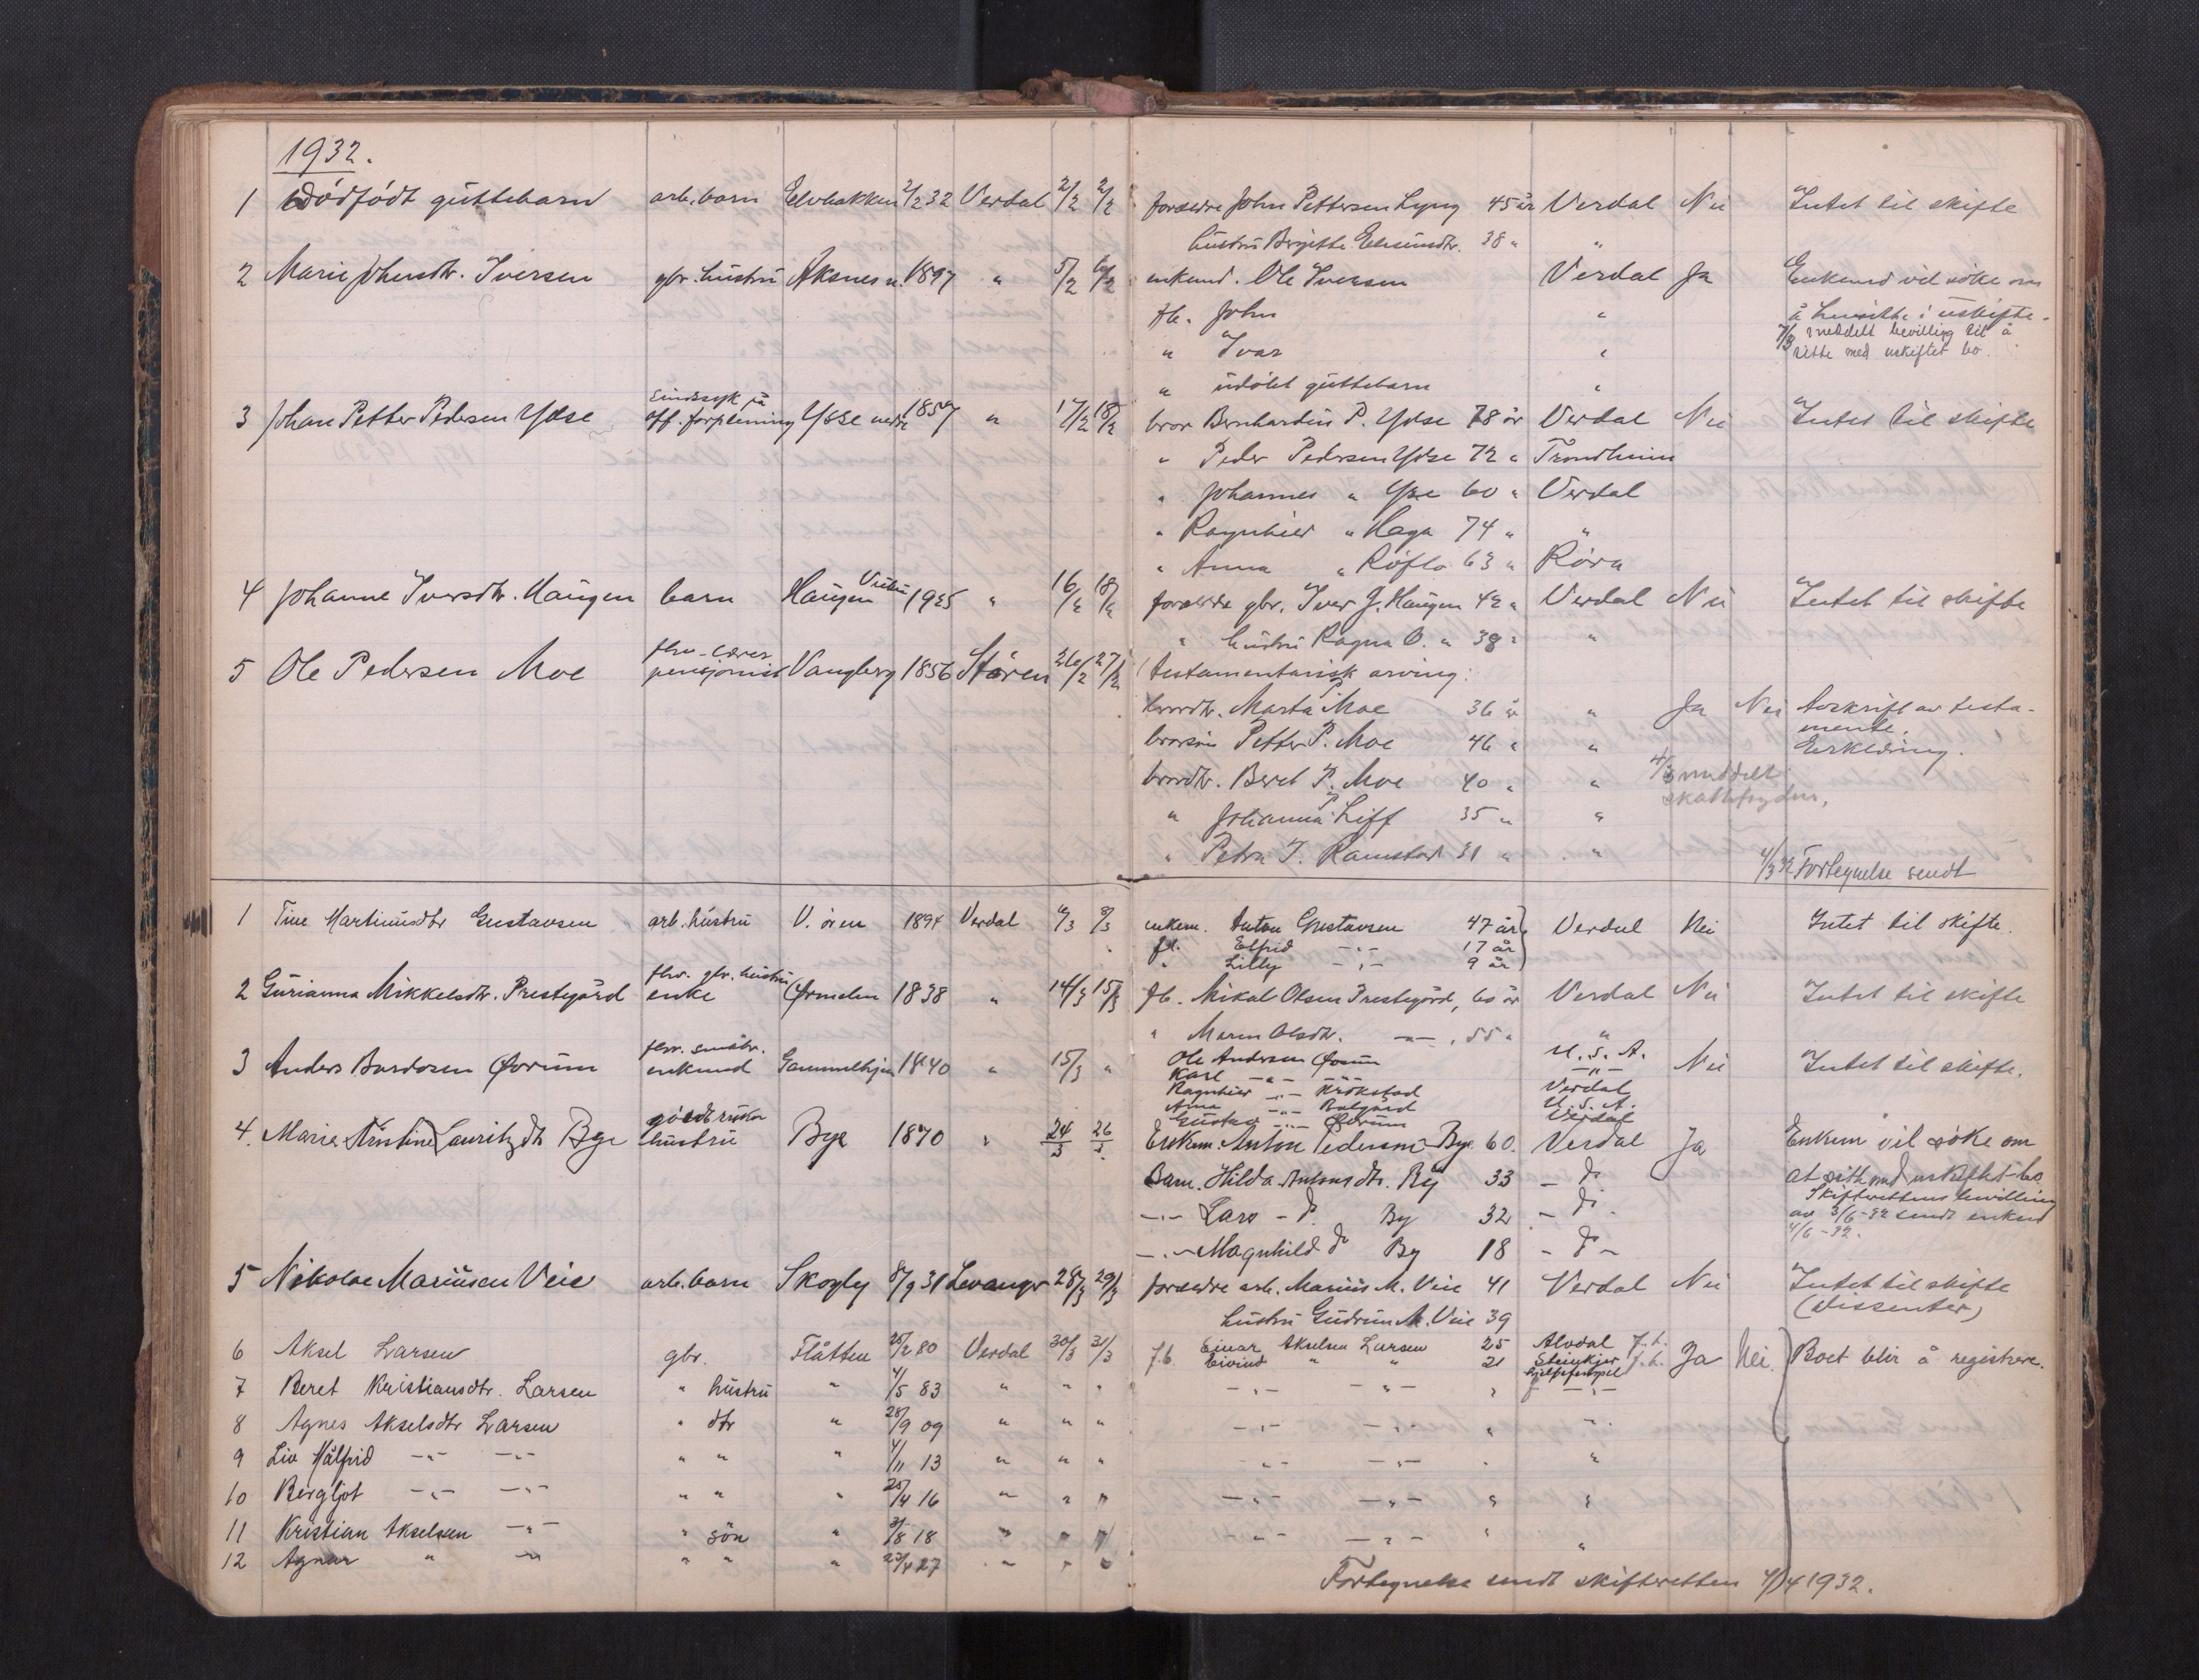 1932.
1 Dödfödt guttebarn arb. barn Elvbakken 2/2 32 Verdal 2/2 2/2 foreldre John Pettersen Lyng 45 år Verdal Nei Intet til skifte
hustru Bergitte Elisiusdtr. 38 " "
2 Marie Johnsdtr. Iversen gbr. hustru Aksnes n. 1897 " 5/2 6/2 enkemd. Ole Iversen Verdal Ja Enkemd vil söke om
fb. John " å hensitte i uskifte.
" Ivar " 7/3 meddelt bevilling til å
sitte med uskiftet bo.
" udöbt guttebarn "
3 Johan Petter Pedersen Ydse Sindssyk på off. forpleining Ydse nedre 1859 " 17/2 18/2 bror Bernhardus P. Ydse 78 år Verdal Nei Intet til skifte
" Peder Pedersen Ydse 72 " Trondheim
" Johannes " Ydse 60 " Verdal
" Ragnhild " Haga 74 " "
" Anna " Röflo 63 " Röra
4 Johanne Iversdtr. Haugen barn Haugen Vuku 1925 " 16/2 18/2 foreldre gbr. Iver J. Haugen 42 " Verdal Nei Intet til skifte
" hustru Ragna O. " 38 " "
5 Ole Pedersen Moe fhv. lærer pensjonist Vangberg 1856 Stören 26/2 27/2 Testamentarisk arving:
brordtr. Marta P. Moe 36 år " Ja Nei Avskrift av testa-
mente.
brorsön Petter P. Moe 46 " " Erklæring.
brordtr. Beret P. Moe 40 " " 4/3 meddelt
skattefogden,
" Johanna P. Liff 35 " "
" Petra P. Ramstad 31 " " 4/3 32 Fortegnelse sendt
1 Tine Martinusdtr Gustavsen arb. hustru V. ören 1894 Verdal 6/3 8/3 enkem. Anton Gustavsen 47 år Verdal Nei Intet til skifte.
fb. Elfrid -"- 17 år
" Lilly -"- 9 år
2 Gurianna Mikkelsdtr. Prestegård fhv. gbr. hustru enke Ørmelen 1838 " 14/3 15/3 fb. Mikal Olsen Prestegård, 60 år Verdal Nei Intet til skifte
" Maren Olsdtr. -"-, 55 " "
3 Anders Bardosen Øvrum fhv. småbr. enkemd Gammelhjem 1840 " 15/3 " Ole Andersen Øvrum U.S.A. Nei Intet til skifte.
Karl -"- -"- -"-
Ragnhild -"- Krokstad Verdal
Anna -"- Balgård U.S.A.
Gustav -"- Øvrum Verdal
4. Marie Kristine Lauritzdtr Bye gårdbruker hustru Bye 1870 " 24/3 26/3. Enkem. Anton Pedersen Bye 60. Verdal Ja Enkem vil söke om
Barn. Hilda Antonsdtr. By 33 - do at sitte med uskiftet bo
Skifterettens bevilling
-"- Lars - do. By 32 - do. av 3/6-32 sendt enkemd
4/6-32.
-"- Magnhild do By 18 - do -
5 Nikolae Mariusen Veie arb. barn Skogly 8/9 31 Levanger 28/3 29/3 foreldre arb. Marius M. Veie 41 Verdal Nei Intet til skifte
(Dissenter)
hustru Gudrun A. Veie 39
6 Aksel Larsen gbr. Flåtten 25/2 80 Verdal 30/3 31/3 f.b. Einar Akselsen Larsen 25 Alvdal f.t. Ja Nei. Boet blir å registrere.
Eivind " " 21 Steinkjer f.t.
7 Beret Kristiansdtr. Larsen " hustru " 4/5 83 " " " -"- -"- " -"-
8 Agnes Akselsdtr Larsen " dtr " 28/9 09 " " " -"- -"- " "
9 Liv Målfrid -"- -"- " " " 4/11 13 " " " -"- -"- " "
10 Bergljot -"- -"- " " " 25/4 16 " " " -"- -"- " "
11 Kristian Akselsen -"- " sön " 3/8 18 " " " -"- -"- " "
12 Agnar " " " " " 23/4 27 " " "
Fortegnelse sendt skifteretten 4/4 1932.